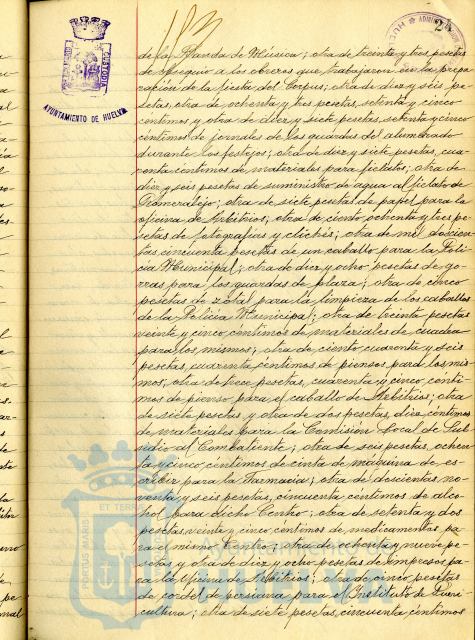 183
2
AYUNTAMIENTO DE HUELVA
de la Banda de Música; otra de treinta y tres pesetas
de obsequio a los obreros que trabajaron en la prepa-
ración de la fiesta del Corpus; otra de diez y seis pe-
setas, otra de ochenta y tres pesetas, setenta y cinco
céntimos y otra de diez y siete pesetas, setenta y cinco
céntimos de jornales de los guardas del alumbrado
durante los festejos; otra de diez y siete pesetas, cua-
renta céntimos de materiales para fielatos; otra de
diez y seis pesetas de suministro de agua al fielato de
Tomeralejo; otra de siete pesetas de papel para la
oficina de Arbitrios; otra de ciento ochenta y tres pe-
setas de fotografías y clichés; otra de mil doscien-
tas cincuenta pesetas de un caballo para la Poli-
cía Municipal; otra de diez y ocho pesetas de go-
rras para los guardas de plaza; otra de cinco
pesetas de zotal para la limpieza de los caballos
de la Policía Municipal; otra de treinta pesetas
veinte y cinco céntimos de materiales de cuadra
para los mismos; otra de ciento cuarenta y seis
pesetas, cuarenta céntimos de piensos para los mis-
mos; otra de trece pesetas, cuarenta y cinco cénti-
mos de pienso para el caballo de Arbitrios; otra
de siete pesetas y otra de dos pesetas, diez céntimos
de materiales para la Comisión Local de Sub-
sidio al Combatiente; otra de seis pesetas, ochen-
ta y cinco céntimos de cinta de máquina de es-
cribir para la Farmacia; otra de doscientas no-
venta y seis pesetas, cincuenta céntimos de alco-
hol para dicho Centro; otra de setenta y dos
pesetas, veinte y cinco céntimos de medicamentos pa-
ra el mismo Centro; otra de ochenta y nueve pe-
setas y otra de diez y ocho pesetas de impresos pa-
ra la Oficina de Arbitrios; otra de cinco pesetas
de cordel de persiana para el Instituto de Pueri-
cultura; otra de siete pesetas, cincuenta céntimos
PORTUS MARIS ET TERRAE
Ayuntamiento de